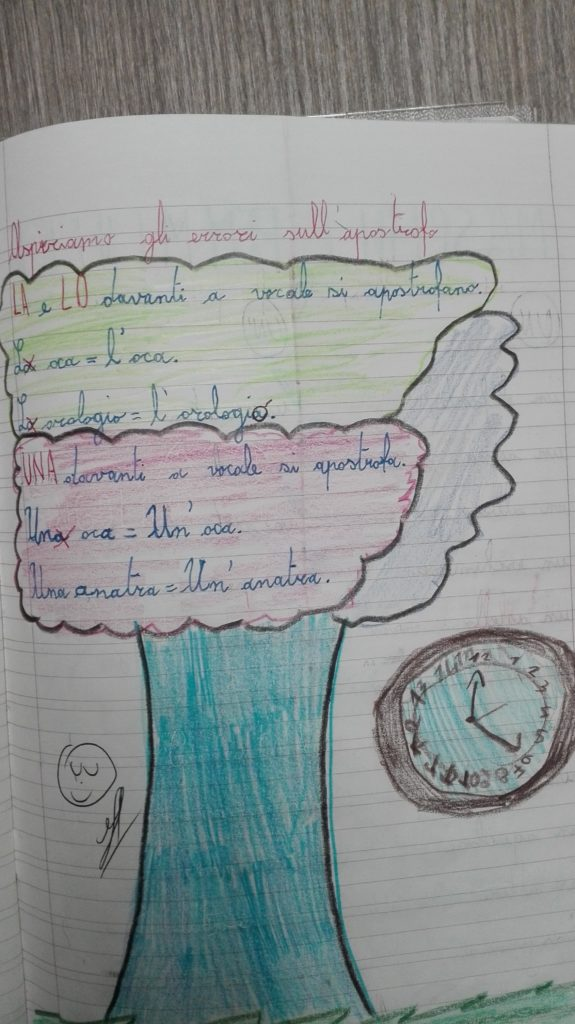 gli errori sull'apostrofo
LA e LO davanti a vocale si apostrofano.
La oca = l'oca.
Lo orologio = l'orologio.
UNA davanti a vocale si apostrofa.
Una oca = Un'oca.
Una anatra = Un'anatra.